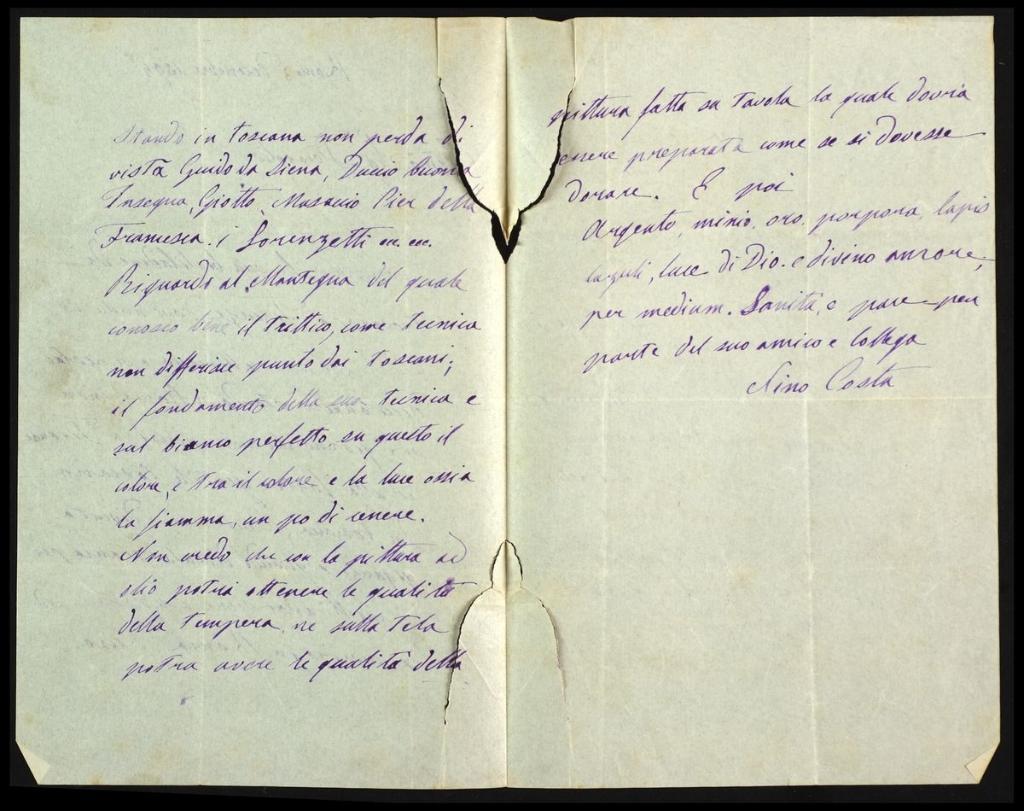 Stando in toscana non perda di
vista Guido da Siena, Duccio Buonin
Insegna, Giotto, Masaccio Pier della
Francesca. i Lorenzetti ec. ec.
Riguardo al Mantegna del quale
conosco bene il trittico, come tecnica
non differisce punto dai toscani;
il fondamento della sua tecnica e
sul bianco perfetto su questo il
colore, e tra il colore e la luce ossia
la fiamma, un po di cenere.
Non credo che con la pittura ad
olio potrà ottenere le qualità
della tempera, ne sulla tela
potra avere le qualità della
pittura fatta su tavola la quale dovrà
essere preparata come se si dovesse
dorare. E poi
Argento, minio, oro, porpora, lapis
lazzuli, luce di Dio. e divino amore,
per medium. Sanità, e pace per
parte del suo amico e Collega
Nino Costa